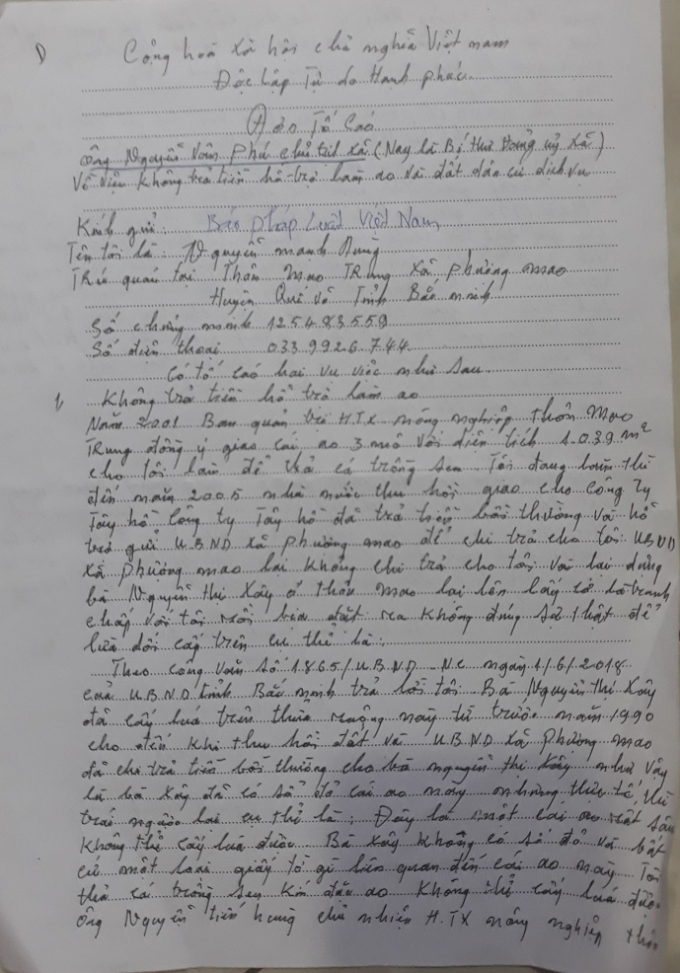 Cộng hoà xã hội chủ nghĩa Việt nam
Độc lập Tự do Hạnh phúc
Đơn Tố Cáo
Ông Nguyễn Văn Phú chủ tịch xã (Nay là Bí thư Đảng uỷ xã)
Về việc không trả tiền hỗ trợ làm ao và đất dân cư dịch vụ
Kính gửi: Báo Pháp Luật Việt Nam
Tên tôi là: Nguyễn mạnh Hùng
TRú quán tại Thôn Mao TRung xã Phường mao
Huyện Quế võ Tỉnh Bắc ninh
Số chứng minh 125483559
Số điện thoại 033.992.6.744
Có tố cáo hai vụ việc như sau
1 Không trả tiền hỗ trợ làm ao
Năm 2001 Ban quản trị H.TX nông nghiệp thôn Mao
TRung đồng ý giao cái ao 3 mẫu với diện tích 1.039 m2
cho tôi làm để thả cá trồng sen Tôi đang làm thì
đến năm 2005 nhà nước thu hồi giao cho Công Ty
Tây hồ Công ty Tây hồ đã trả tiền bồi thường và hỗ
trợ gửi U.B.ND xã Phường mao để chi trả cho tôi U.B.ND
xã Phường mao lại không chi trả cho tôi và lại dựng
bà Nguyễn thị Xây ở thôn Mao lại lên lấy cớ là tranh
chấp với tôi rồi bịa đặt ra không đúng sự thật để
lừa dối cấp trên cụ thể là:
Theo công văn số 1865/U.B.ND - N.C ngày 1/6/2018
của U.B.ND tỉnh Bắc ninh trả lời tôi Bà Nguyễn thị Xây
đã cấy lúa trên thửa ruộng này từ trước năm 1990
cho đến khi thu hồi đất và U.B.ND xã Phường mao
đã chi trả tiền bồi thường cho bà nguyễn thị Xây như vậy
là bà Xây đã có sổ đỏ cái ao này nhưng thực tế thì
trái ngược lại cụ thể là: Đây là một cái ao rất sâu
không thể cấy lúa được Bà Xây không có sổ đỏ và bất
cứ một loại giấy tờ gì liên quan đến cái ao này Tôi
thả cá trồng sen kín đầu ao không thể cấy lúa được
ông Nguyễn tiến hưng chủ nhiệm H.TX nông nghiệp thôn